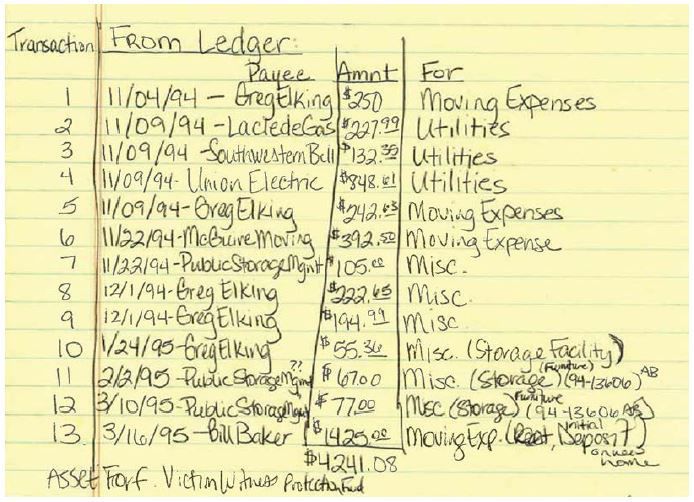 Transaction From Ledger:
Payee Amnt For
1 11/04/94 - Greg Elking $250 Moving Expenses
2 11/09/94 - LacledeGas $227.99 Utilities
3 11/09/94 - Southwestern Bell $132.35 Utilities
4 11/09/94 - Union Electric $848.61 Utilities
5 11/09/94 - Greg Elking $242.63 Moving Expenses
6 11/22/94 - McGuire Moving $392.50 Moving Expense
7 11/22/94 - Public Storage Mgmt $105.00 Misc.
8 12/1/94 - Greg Elking $222.65 Misc.
9 12/1/94 - Greg Elking $194.99 Misc.
10 1/24/95 - Greg Elking $55.36 Misc. (Storage Facility)
?? (Furniture)
11 2/2/95 - Public Storage Mgmt $67.00 Misc. (Storage) (94-13606) AB
Furniture
12 3/10/95 - Public Storage Mgmt $77.00 Misc (Storage) (94-13606 AB)
13. 3/16/95 - Bill Baker $1425.00 Moving Exp. (Rent, Initial Deposit)
on new home
$4241.08
Asset Forf. Victim Witness Protection Fund